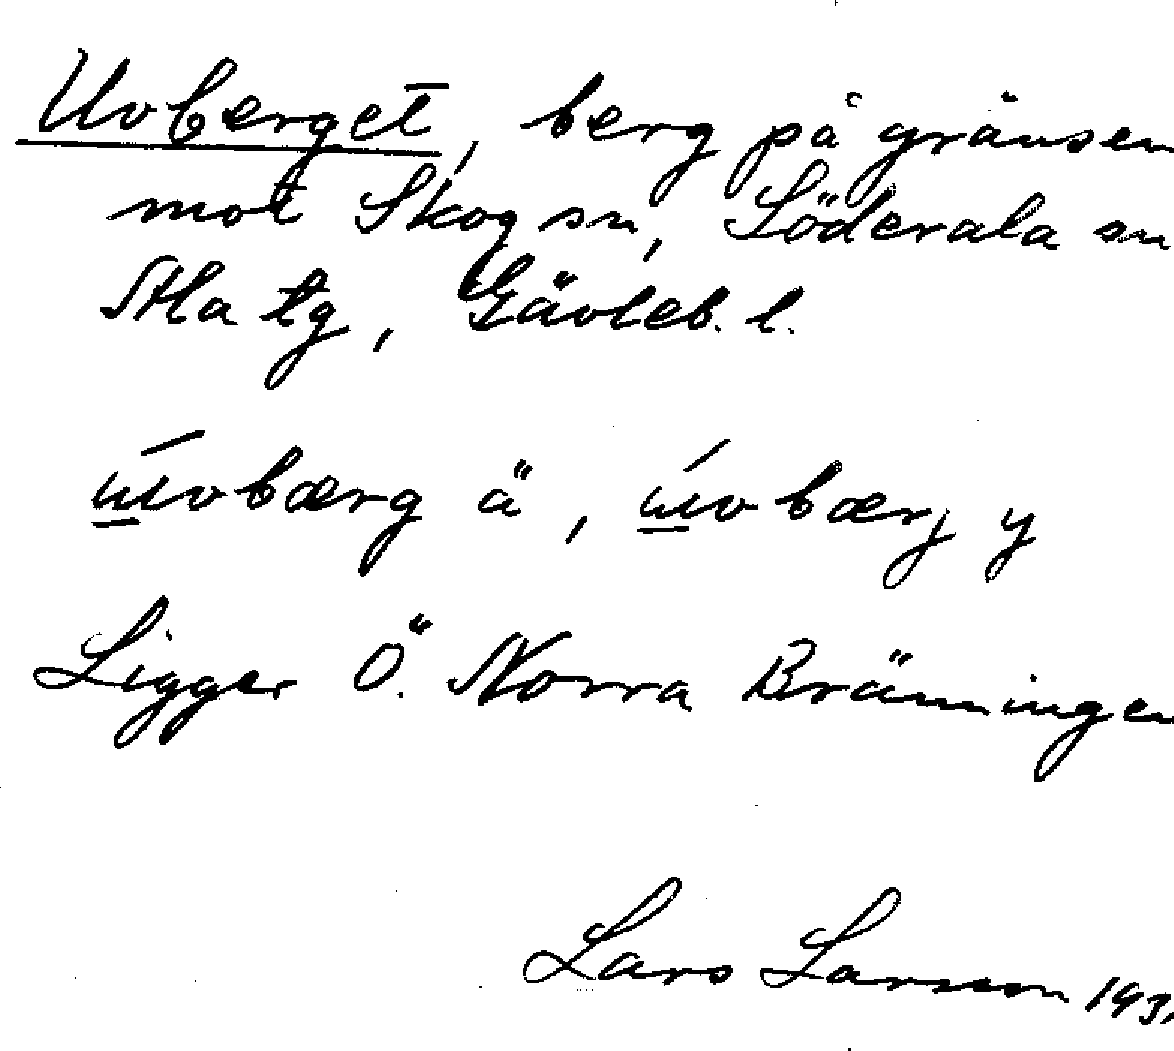 Uvberget, berg på gränsen
mot Skog sn, Söderala sn
Ala tg, Gävleb. l.
úvbærg ä, úvbærj y
Ligger Ö. Norra Bränningen
Lars Larsson 193